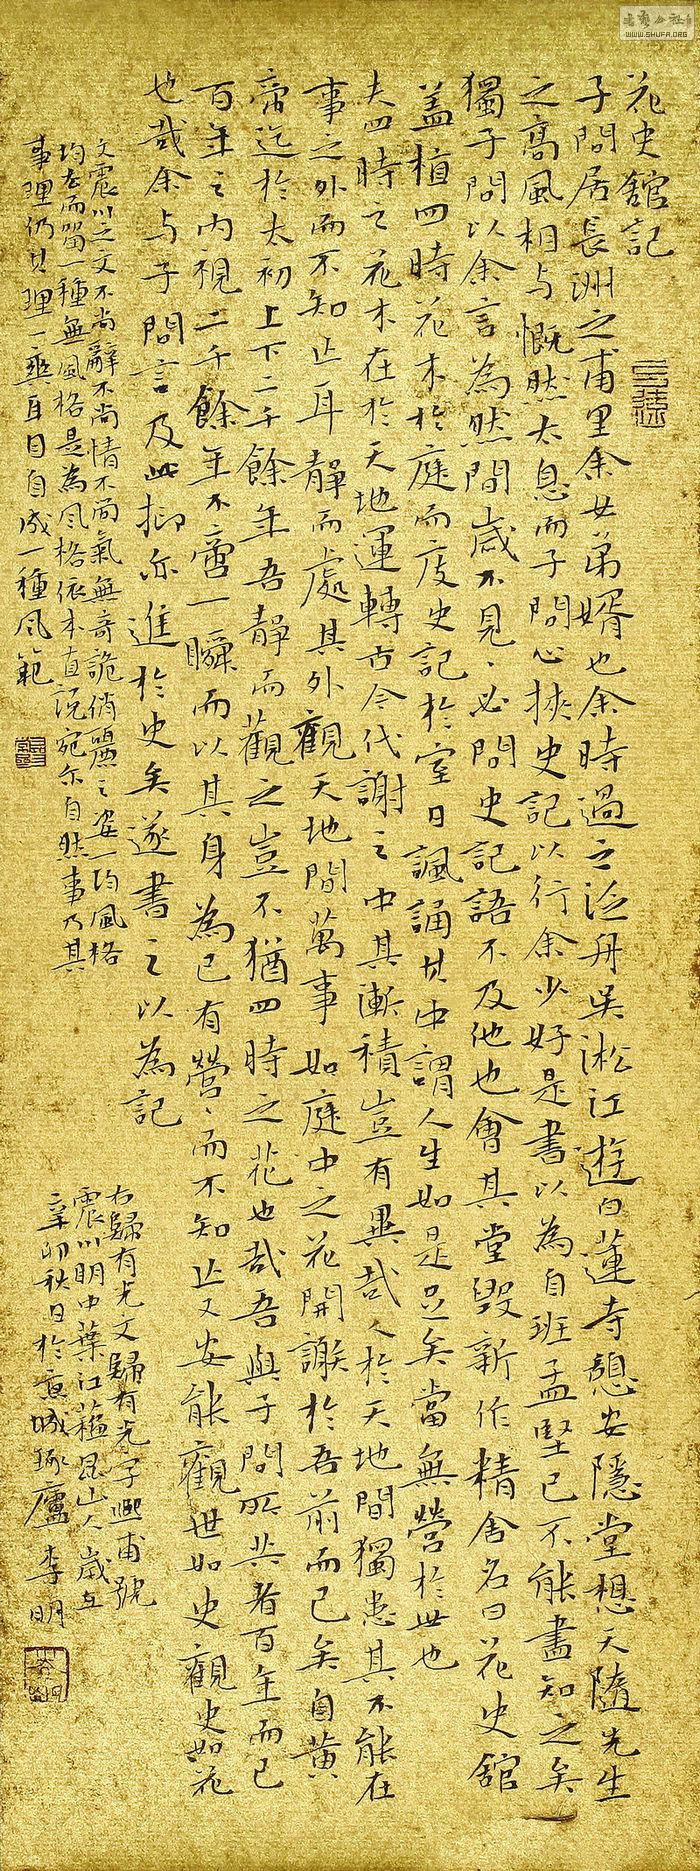 花史舘記
子問居長洲之甫里余女弟婿也余時過之泛舟吳淞江遊白蓮寺憩安隱堂想天隨先生
之高風相与慨然太息而子問必挾史記以行余少好是書以為自班孟堅已不能盡知之矣
獨子問以余言為然間歲不見、必問史記語不及他也會其堂毀新作精舍名曰花史舘
盖植四時花木於庭而庋史記於室日諷誦其中謂人生如是足矣當無營於世也
夫四時之花木在於天地運轉古今代謝之中其漸積豈有異哉人於天地間獨患其不能在
事之外而不知止耳靜而處其外觀天地間萬事如庭中之花開謝於吾前而已矣自黃
帝迄於太初上下二千餘年吾靜而觀之豈不猶四時之花也哉吾與子問所共者百年而已
百年之內視二千餘年不啻一瞬而以其身為已有營、而不知止又安能觀世如史觀史如花
也哉余与子問言及此抑亦進於史矣遂書之以為記
文震川之文不尚辭不尚情不尚氣無奇詭俏麗之姿一均風格
均去而留一種無風格是為風格依本直說宛尔自然事乃其
事理仍其理一與耳目自成一種風範
右歸有光文歸有光字熙甫號
震川明中葉江蘇昆山人歲在
辛卯秋日於京城琢廬李明
書法公社
WWW.SHUFA.ORG